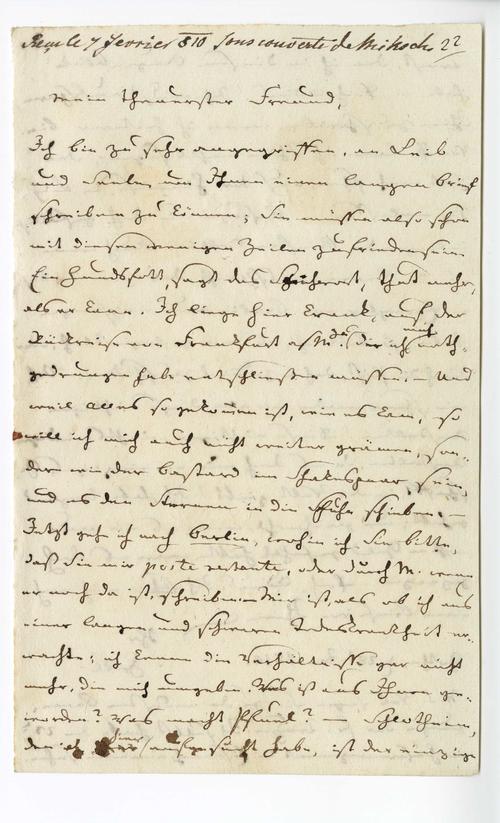 Reçu le 7 fevrier 810 sous couvert de Mr Koch 22
Mein theuerster Freund,
Ich bin zu sehr angegriffen, an Leib
und Seele, um Ihnen einen langen brief
schreiben zu können; Sie müssen also schon
mit diesen wenigen Zeilen zufrieden sein.
Ein Hundsfott, sagt das Sprichwort, thut mehr,
als er kann. Ich liege hier krank, auf der
Rückreise von Frankfurt a/M. da (der ich mich noth-
gedrungen habe entschließen müssen. – Und
weil alles so gekommen ist, wie es kam, so
will ich mich auch nicht weiter grämen, son-
dern wie der bastard im Shakespear sein,
und es den Sternen in die Schuhe schieben. –
Jetzt geh ich nach berlin, wohin ich Sie bitte,
daß Sie mir poste restante, oder durch M. wenn
er noch da ist, schreiben. Mir ist, als ob ich aus
einer langen und schweren Todeskrankheit er-
wachte; ich kenne die Verhältnisse gar nicht
mehr, die mich umgeben. Was ist aus Ihnen ge-
worden? Was macht Pfuel? – Schlotheim,
den ich hier aufgesucht habe, ist der einzige